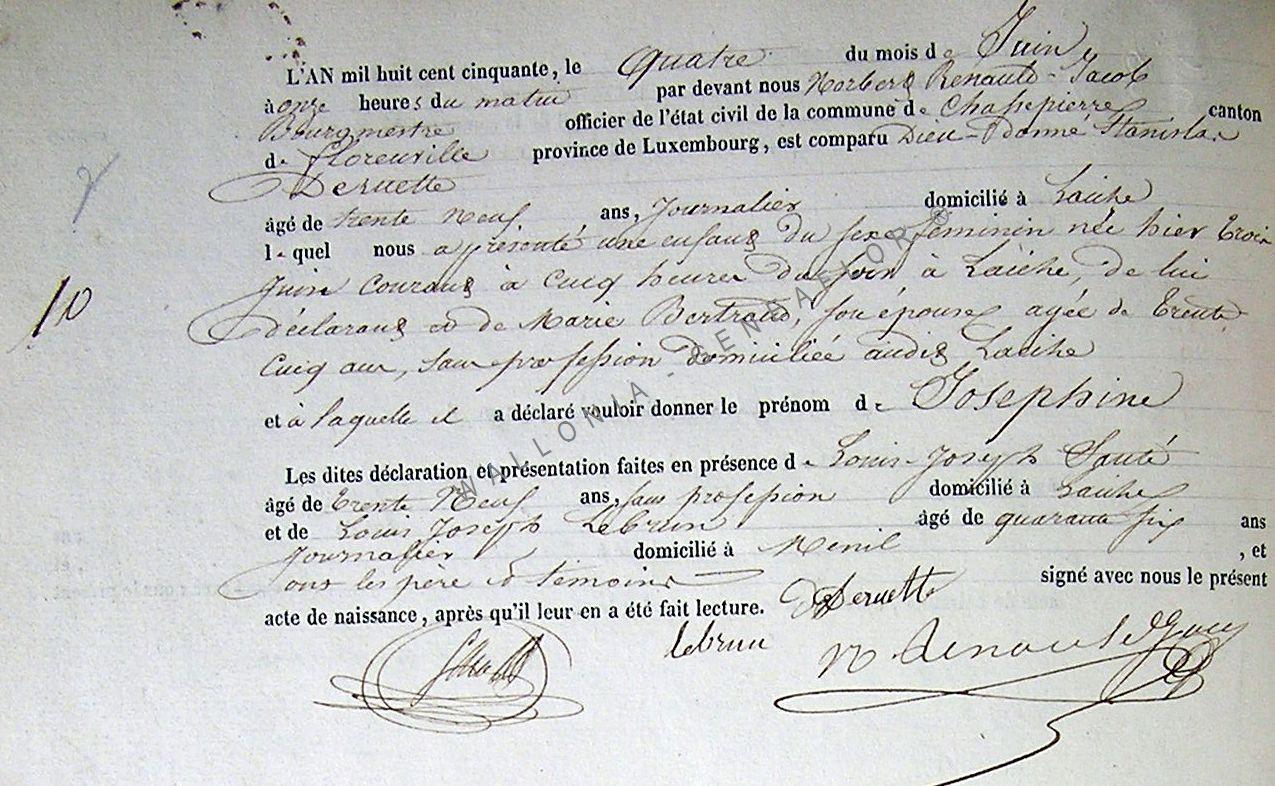 L'AN mil huit cent cinquante, le quatre du mois de Juin
à onze heures du matin par devant nous Norbert Renauld-Jacob
Bourgmestre officier de l'état civil de la commune de Chassepierre canton
de Florenville province de Luxembourg, est comparu Dieu-Donné Stanislas
Deruette
âgé de trente neuf ans, Journalier domicilié à Laiche
lequel nous a présenté une enfant du sexe féminin née hier trois
Juin courant à cinq heures du soir à Laiche, de lui
déclarant et de Marie Bertrand, son épouse agée de trente
cinq ans, sans profession domiciliée audit Laiche
et à laquelle il a déclaré vouloir donner le prénom de Josephine
Les dites déclaration et présentation faites en présence de Louis-Joseph
âgé de trente neuf ans, sans profession domicilié à Laiche
et de Louis Joseph Lebrun âgé de quarante six ans
Journalier domicilié à Menil , et
ont les père et témoins signé avec nous le présent
acte de naissance, après qu'il leur en a été fait lecture. Deruette
lebrun
10
WALLONIA - GENDAFLOR ®